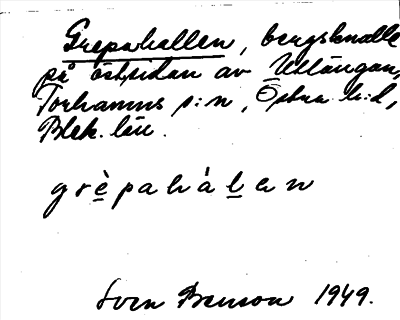 Grepahallen, bergsknalle
på östsidan av Utlängan,
Torhamns s:n, Östra h:d,
Blek. län.
grèpahálen
Sven Benson 1949.